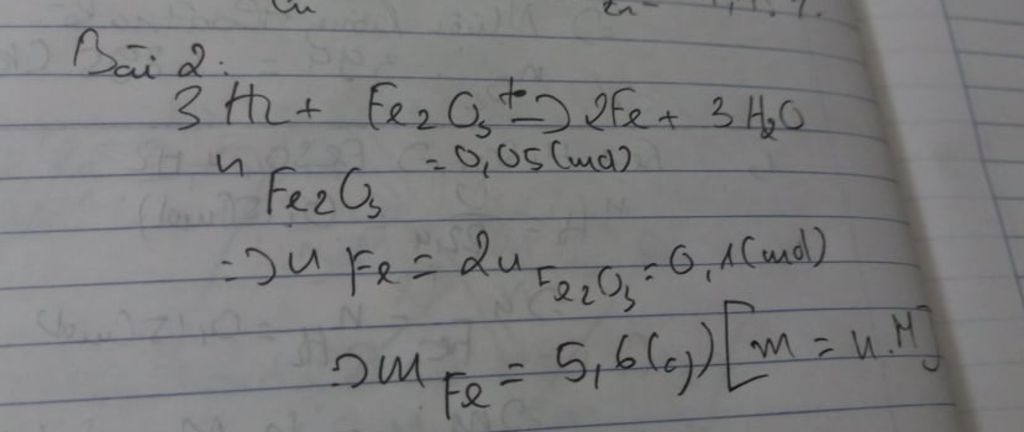 Bài 2:
3 H₂ + Fe₂O₃ t°→ 2Fe + 3 H₂O
n Fe₂O₃ = 0,05 (mol)
=> n Fe = 2n Fe₂O₃ = 0,1 (mol)
=> m Fe = 5,6 (g) [m = n.M]